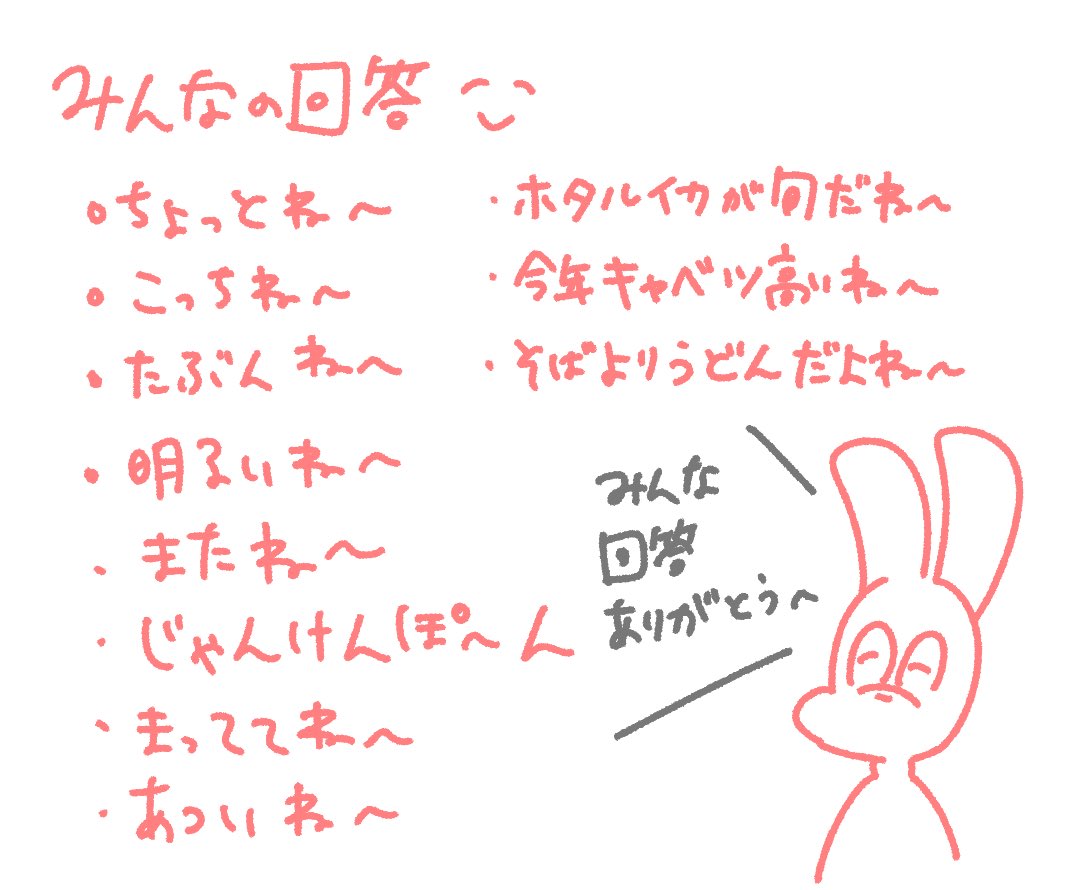 みんなの回答
・ちょっとね〜
・こっちね〜
・たぶんね〜
・明るいね〜
・またね〜
・じゃんけんぽ〜ん
・まっててね〜
・あついね〜
・ホタルイカが旬だね〜
・今年キャベツ高いね〜
・そばよりうどんだよね〜
みんな
回答
ありがとう〜